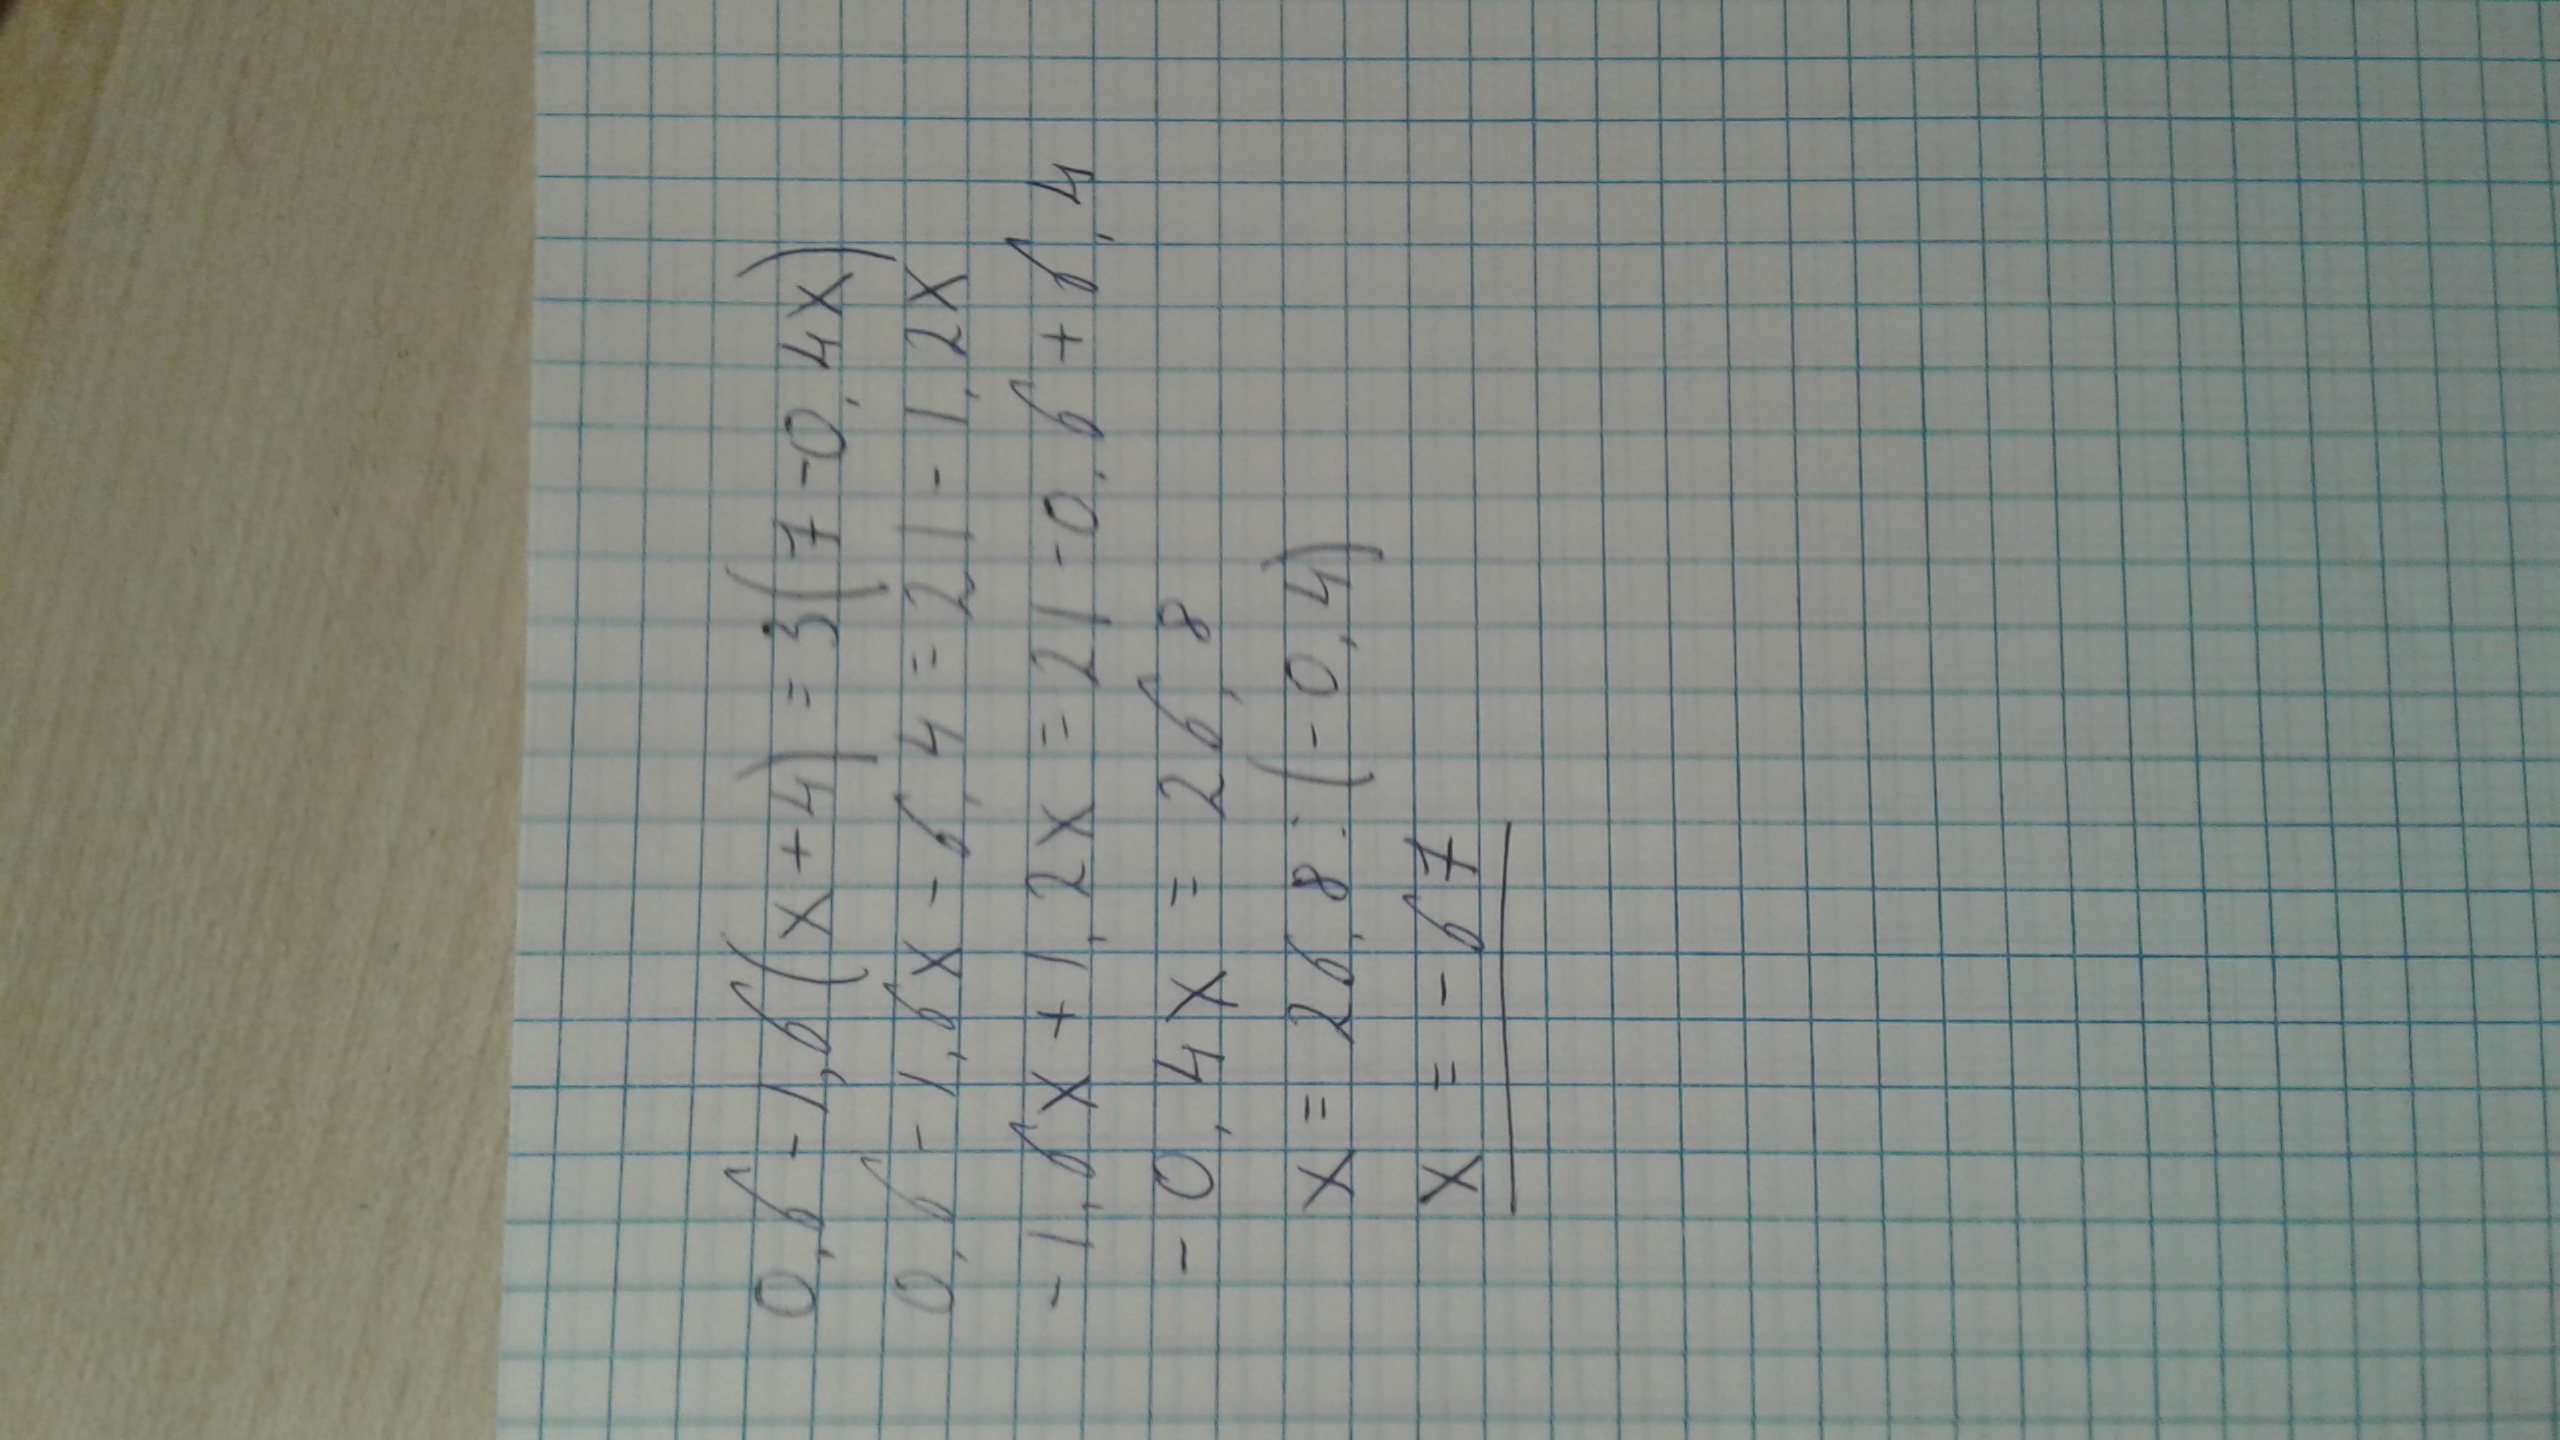 0,6 - 1,6(x+4) = 3(7-0,4x)
0,6 - 1,6x - 6,4 = 21 - 1,2x
-1,6x + 1,2x = 21 - 0,6 + 6,4
-0,4x = 26,8
x = 26,8 : (-0,4)
x = -67